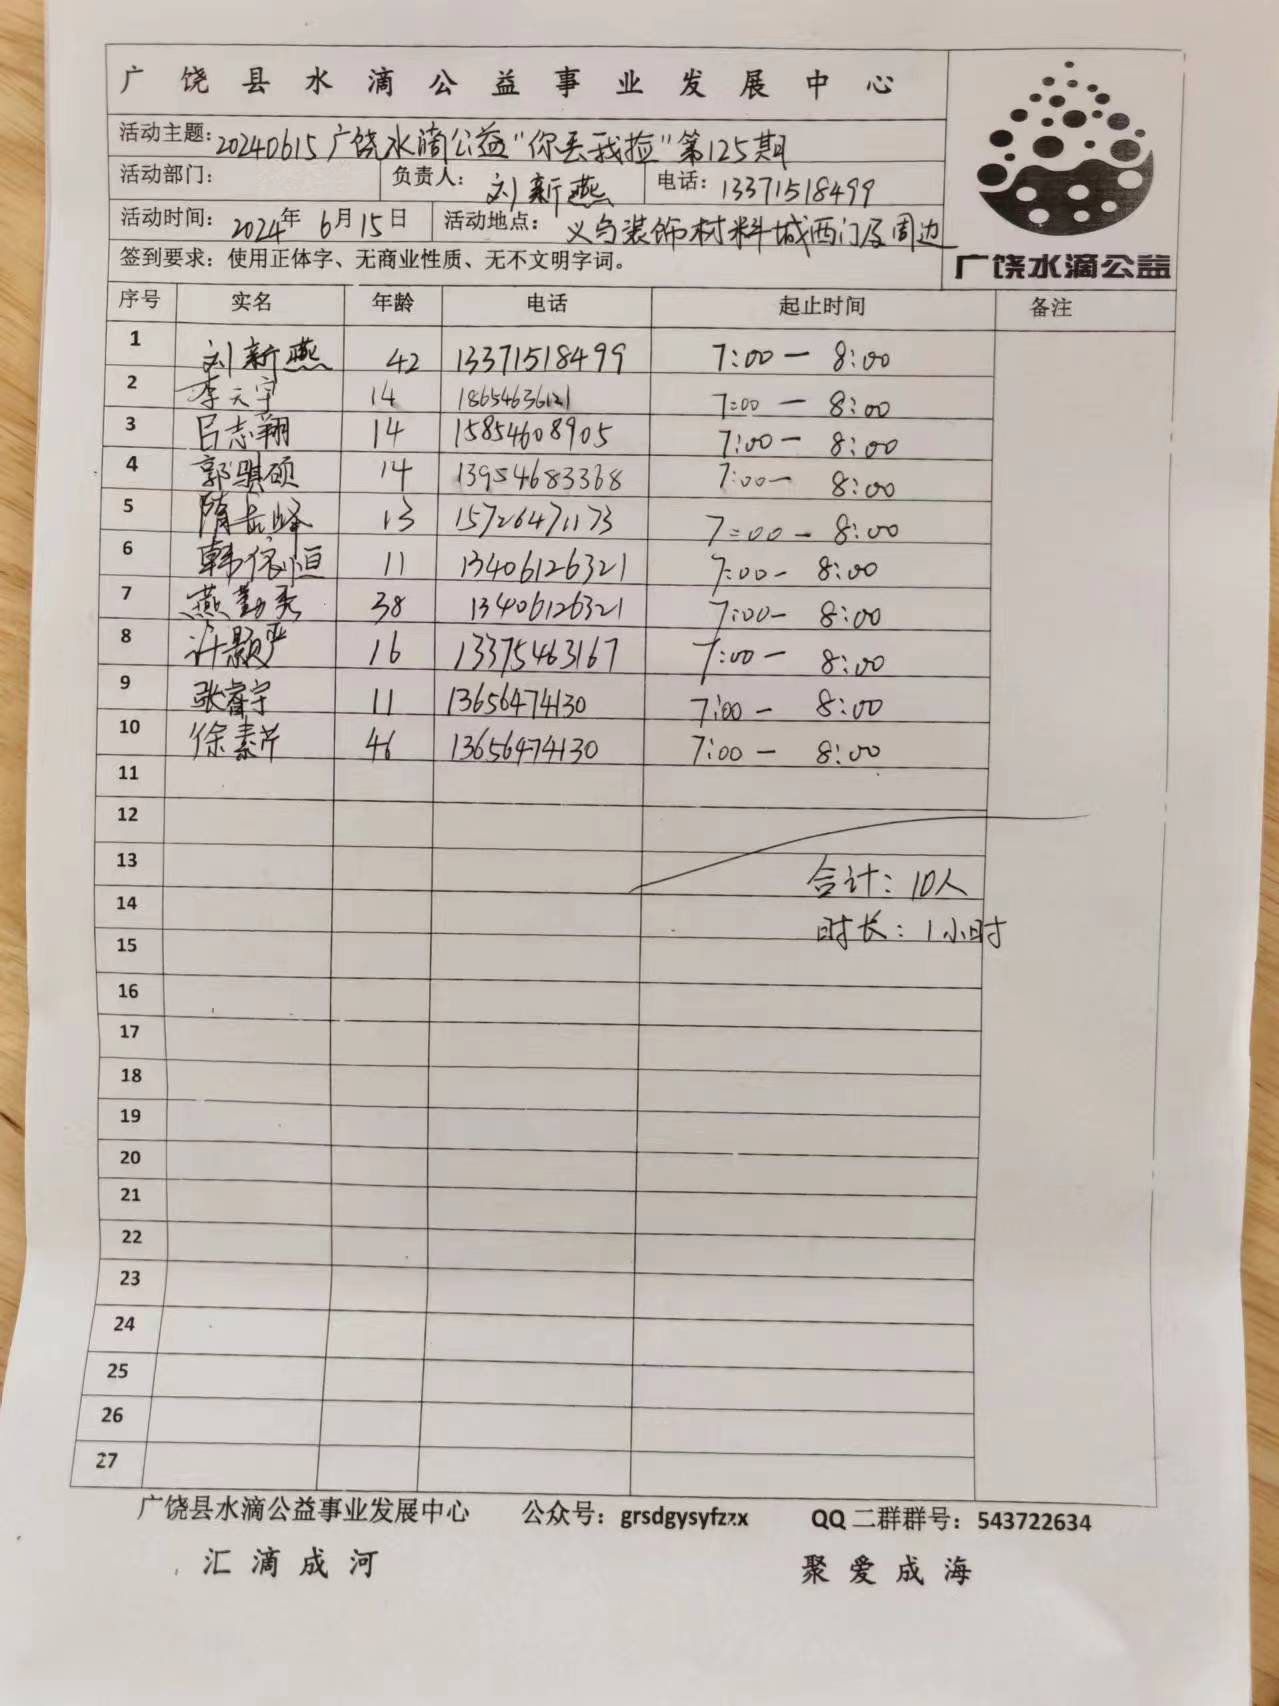 广饶县水滴公益事业发展中心
活动主题:20240615广饶水滴公益"你丢我捡"第125期
活动部门: 负责人: 刘新燕 电话:13371518499
活动时间: 2024年 6月15日 活动地点: 义乌装饰材料城西门及周边
签到要求：使用正体字、无商业性质、无不文明字词。
广饶水滴公益
序号 实名 年龄 电话 起止时间 备注
1 刘新燕 42 13371518499 7:00 — 8:00
2 李天宇 14 18654636121 7:00 — 8:00
3 吕志翔 14 15854608905 7:00 — 8:00
4 郭骐硕 14 13954683368 7:00 — 8:00
5 隋岳峰 13 15726471173 7:00 — 8:00
6 韩依恒 11 13406126321 7:00 — 8:00
7 燕勤秀 38 13406126321 7:00 — 8:00
8 许颢严 16 13375463167 7:00 — 8:00
9 张睿宇 11 13656474130 7:00 — 8:00
10 徐素芹 46 13656474130 7:00 — 8:00
11
12
13 合计：10人
14 时长：1小时
15
16
17
18
19
20
21
22
23
24
25
26
27
广饶县水滴公益事业发展中心 公众号：grsdgysyfzzx QQ 二群群号：543722634
汇滴成河 聚爱成海